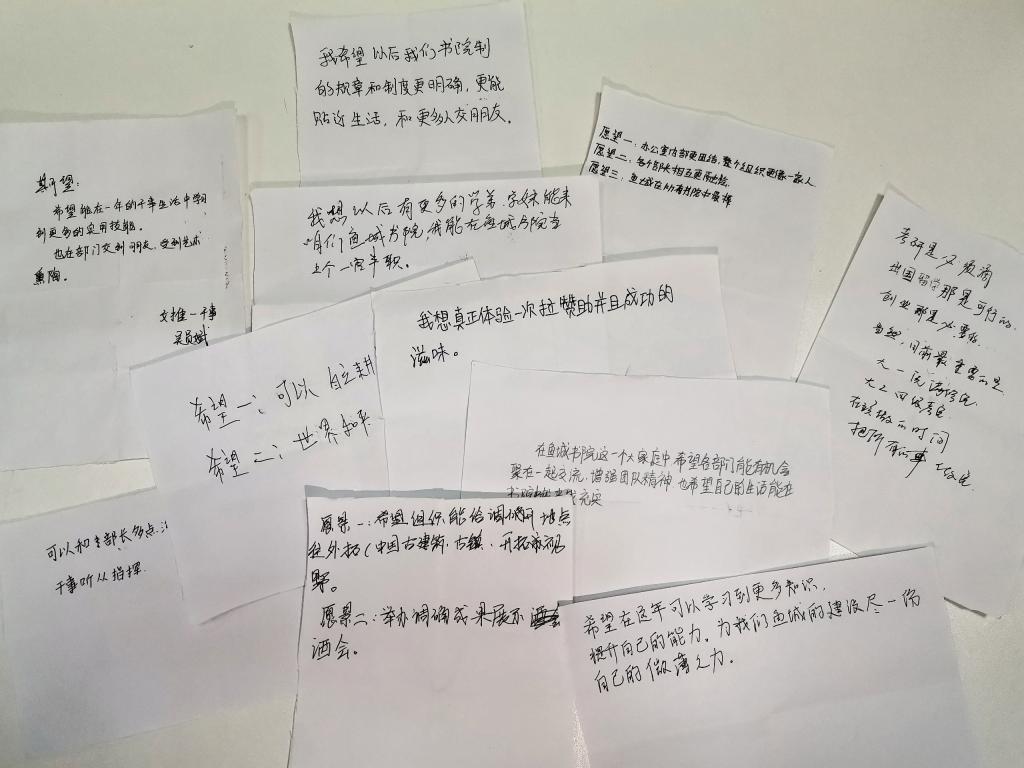 我希望以后我们书院制
的规章和制度更明确，更能
贴近生活，和更多人交朋友。
期望：
希望能在一年的干事生活中学习
到更多的实用技能。
也在部门交到朋友，受到艺术
熏陶。
文推一干事
愿望一：办公室内部更团结，整个组织更像一家人
愿望二：各个部门相互更有
愿望三：鱼城在所有书院中最棒
我想以后有更多的学弟、学妹能来
咱们鱼城书院，我能在鱼城书院当
上个一官半职。
我想真正体验一次拉赞助并且成功的
滋味。
考研是必须滴
出国留学那是可行的.
创业那是必要的...
当然，目前最重要的是
大一
大二四
在
的时间
把所有的事
希望一：可以自主耕
希望二：世界和平
在鱼城书院这一个大家庭中，希望各部门能有机会
聚在一起交流，增强团队精神，也希望自己的生活能在
充实
可以和部长多点
干事听从指挥.
愿景一：希望组织能给调研 地点
往外拓（中国古建筑、古镇、开拓 视
野。
愿景二：举办调确成果展示
酒会。
希望在这年可以学习到更多知识，
提升自己的能力，为我们鱼城的建设尽一份
自己的微薄之力.